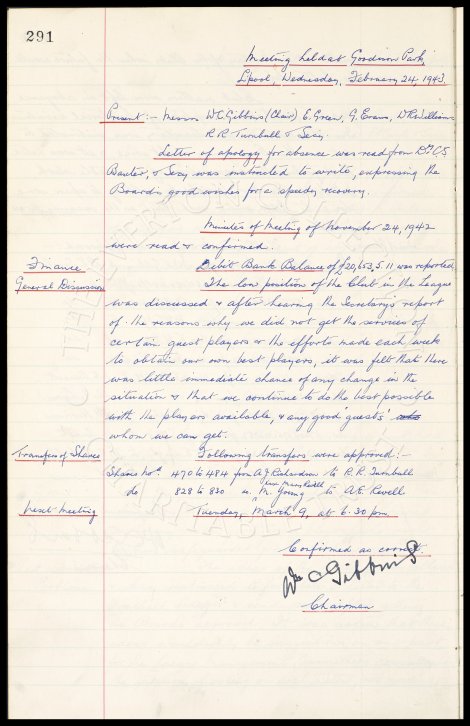 291
Meeting held at Goodison Park,
L'pool, Wednesday, February 24, 1943.
Present :- Messrs W.C. Gibbins (Chair) E. Green, G. Evans, W.R. Williams
R.R. Turnbull & Secy.
Letter of apology for absence was read from Dr. C.S.
Baxter, & Secy was instructed to write, expressing the
Board's good wishes for a speedy recovery.
Minutes of Meeting of November 24, 1942
were read & confirmed.
Finance Debit Bank Balance of £20,653. 5. 11 was reported.
General Discussion The low position of the Club in the League
was discussed & after hearing the Secretary's report
of the reasons why we did not get the services of
certain guest players & the efforts made each week
to obtain our own best players, it was felt that there
was little immediate chance of any change in the
situation & that we continue to do the best possible
with the players available, & any good 'guests'
whom we can get.
Transfers of Shares Following transfers were approved :-
Shares Nos. 470 to 484 from A.J. Richardson to R.R. Turnbull
do 828 to 830 " M. Young to A.E. Revell
Mary Revell
Next Meeting Tuesday, March 9, at 6.30 pm.
Confirmed as correct.
Wm C Gibbins
Chairman